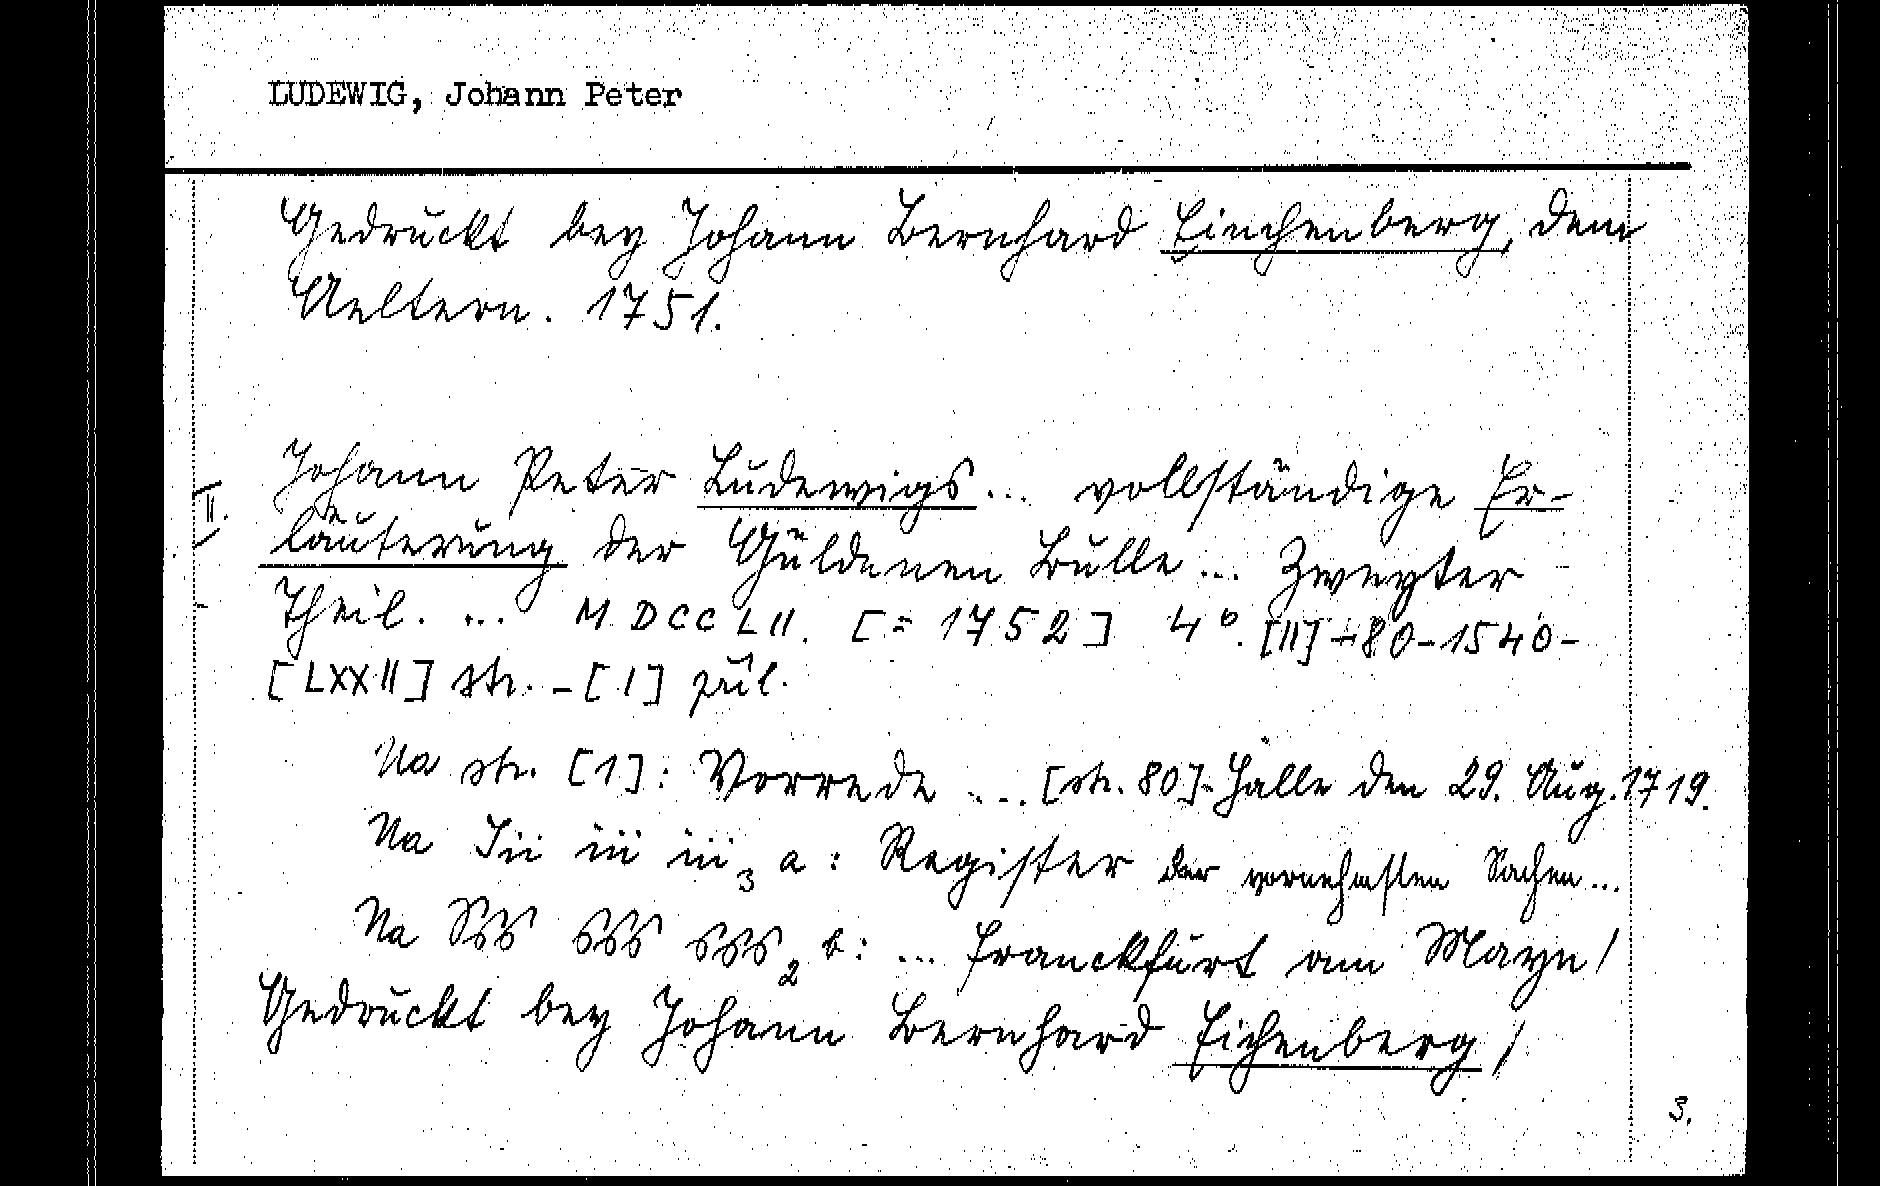 LUDEWIG, Johann Peter
Gedruckt bey Johann Bernhard Einchenberg, dem
Aeltern. 1751.
Johann Peter Ludewigs... vollständige Er-
II. läuterung der Güldenen Bulle... Zweyter
Theil. ... MDCCLII. [=1752] 4°. [II]+80-1540-
[LXXII] str. -[1] příl.
Na str. [1]: Vorrede ... [str. 80]-Halle den 29. Aug. 1719.
Na Iii iii iii3 a: Register der vornehmsten Sachen...
Na Sss sss sss2 b: ... Franckfurt am Mayn/
Gedruckt bey Johann Bernhard Eichenberg/
3.